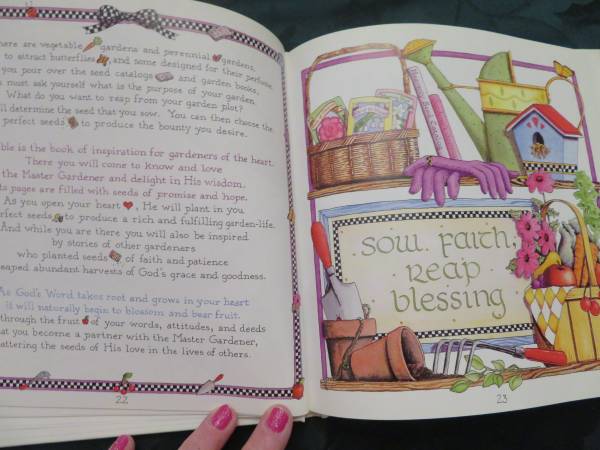 are vegetable gardens and perennial gardens,
to attract butterflies and some designed for their perfume.
you pour over the seed catalogs and garden books,
must ask yourself what is the purpose of your garden.
What do you want to reap from your garden plot?
determine the seed that you sow. You can then choose the
perfect seeds to produce the bounty you desire.
is the book of inspiration for gardeners of the heart.
There you will come to know and love
the Master Gardener and delight in His wisdom.
pages are filled with seeds of promise and hope.
As you open your heart, He will plant in you
seeds to produce a rich and fulfilling garden-life.
And while you are there you will also be inspired
by stories of other gardeners
who planted seeds of faith and patience
reaped abundant harvests of God's grace and goodness.
As God's Word takes root and grows in your heart
it will naturally begin to blossom and bear fruit.
through the fruit of your words, attitudes, and deeds
you become a partner with the Master Gardener,
scattering the seeds of His love in the lives of others.
22
sow faith,
reap
blessing
23